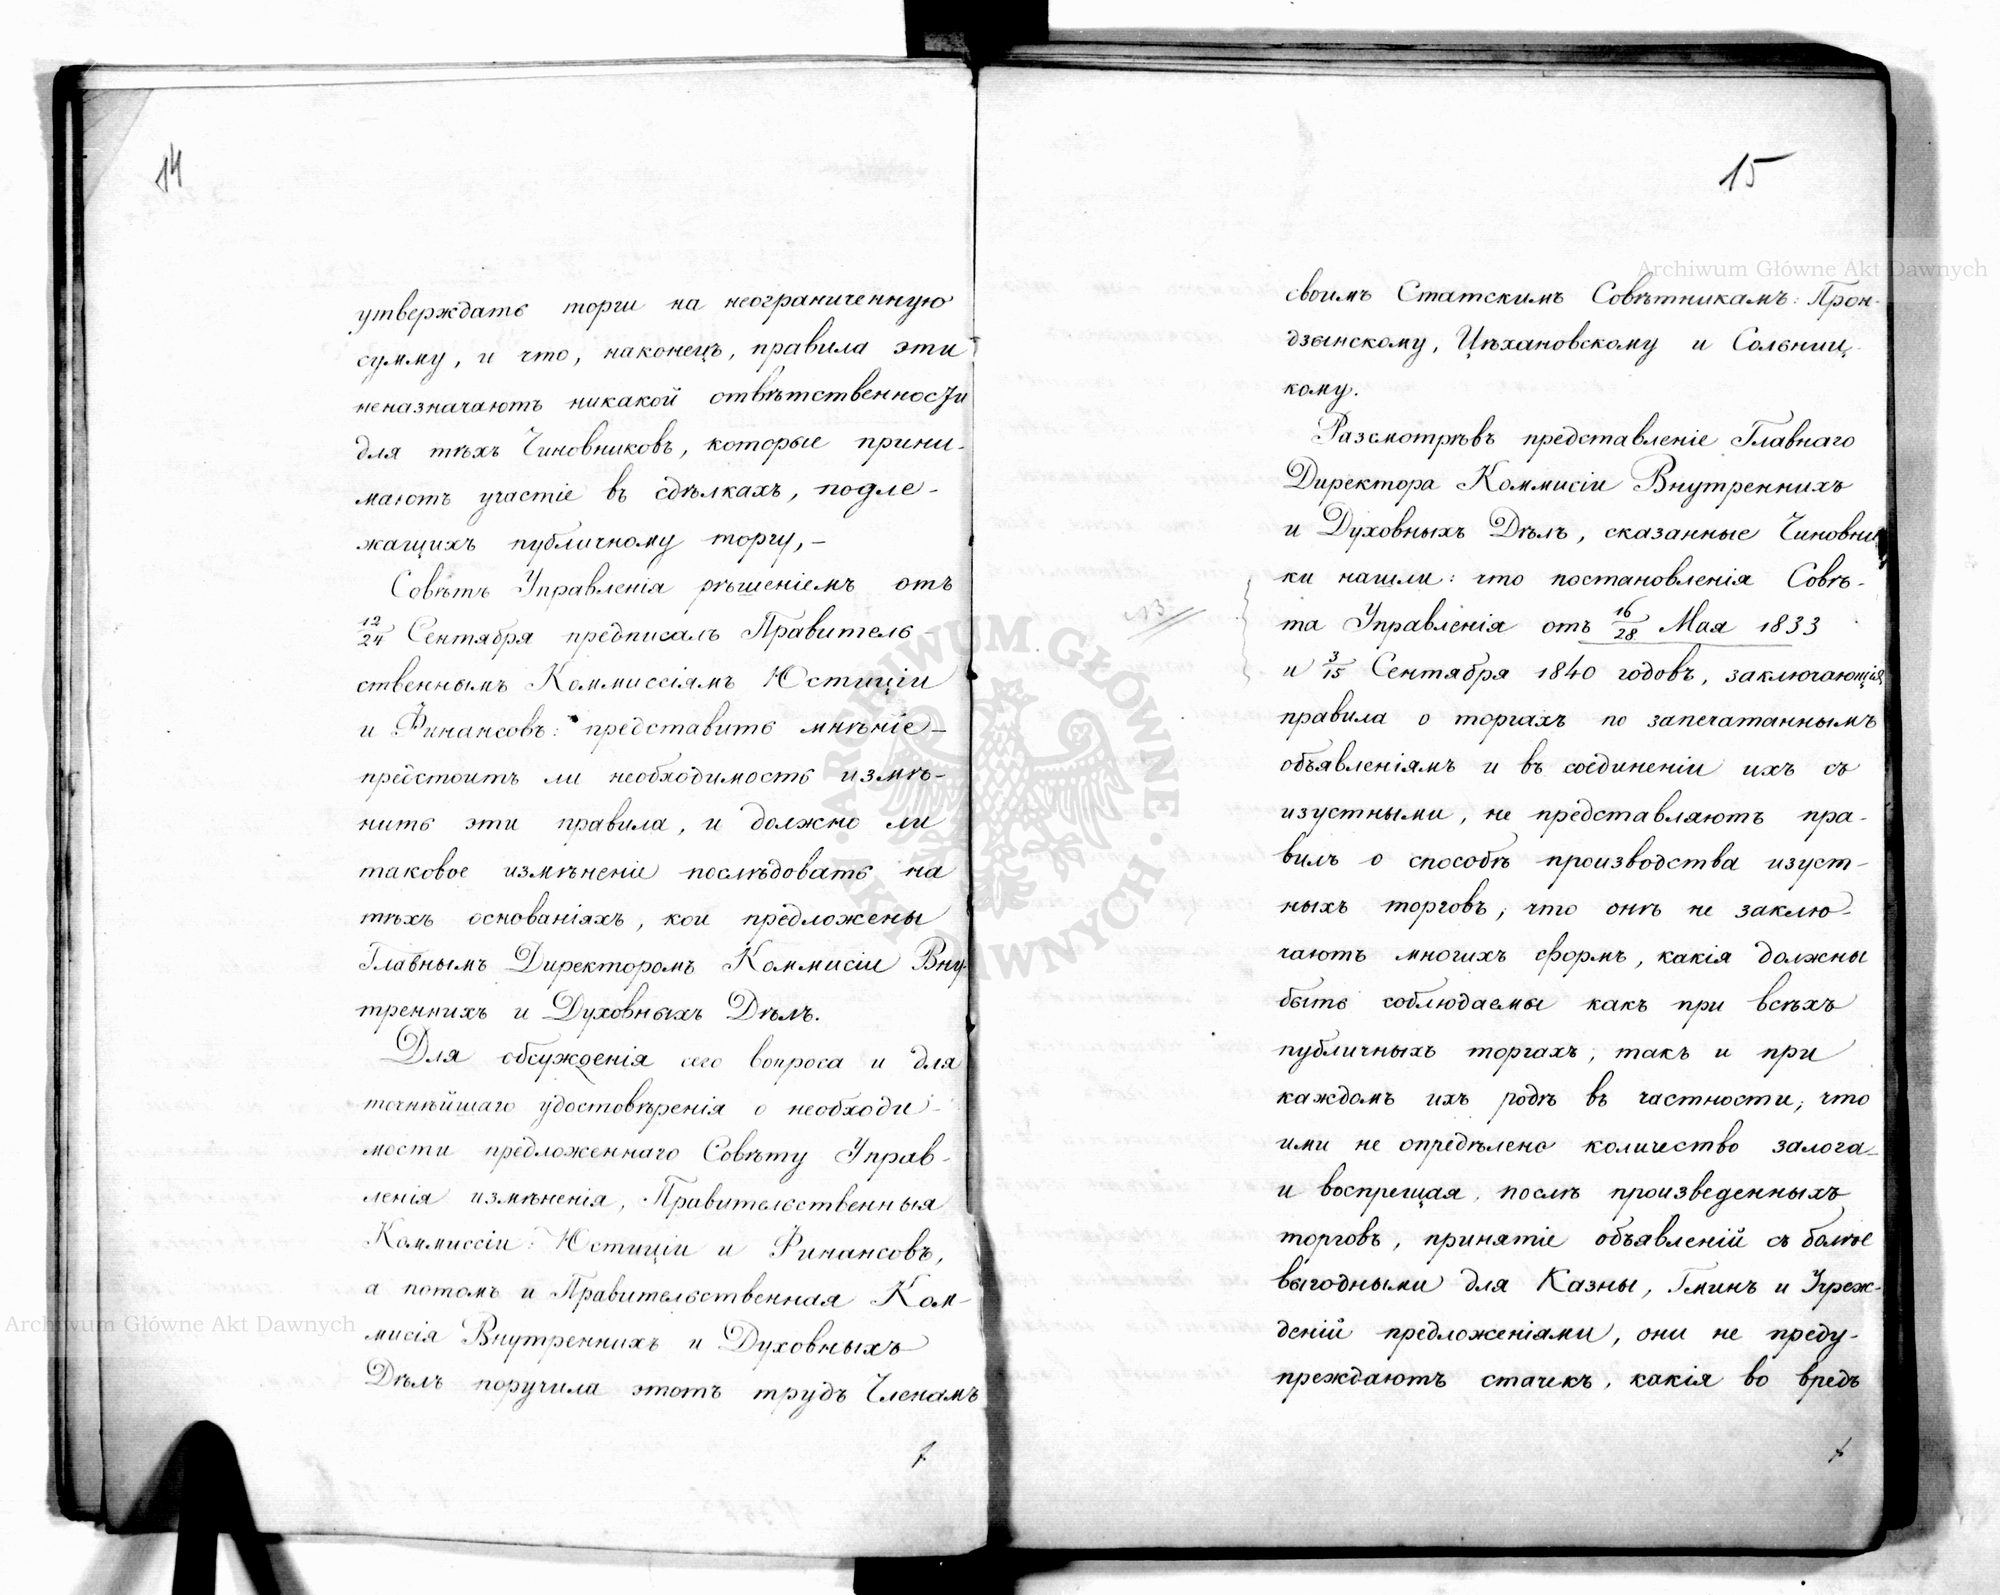 14
утверждать торги на неограниченную
сумму, и что, наконецъ, правила эти
неназначаютъ никакой отвѣтственности
для тѣхъ Чиновниковъ, которые прини-
маютъ участіе въ сдѣлкахъ, подле-
жащихъ публичному торгу,-
Совѣтъ Управленія рѣшеніемъ отъ
12/24 Сентября предписалъ Правитель-
ственнымъ Коммиссіямъ Юстиціи
и Финансовъ: представить мнѣніе-
предстоитъ ли необходимость измѣ-
нить эти правила, и должно ли
таковое измѣненіе послѣдовать на
тѣхъ основаніяхъ, кои предложены
Главнымъ Директоромъ Коммисіи Вну-
тренихъ и Духовныхъ Дѣлъ.
Для обсужденія сего вопроса и для
точнѣйшаго удостовѣренія о необходи-
мости предложеннаго Совѣту Управ-
ленія измѣненія, Правительственныя
Коммиссіи: Юстиціи и Финансовъ,
а потомъ и Правительственная Ком-
мисія Внутреннихъ и Духовныхъ
Дѣлъ поручила этотъ трудъ Членамъ
15
своимъ Статскимъ Совѣтникамъ: Прон-
дзынскому, Цѣхановскому и Сольниц-
кому.
Разсмотрѣвъ представленіе Главнаго
Директора Коммисіи Внутреннихъ
и Духовныхъ Дѣлъ, сказанные Чиновни-
ки нашли: что постановленія Совѣ-
та Управленія отъ 16/28 Мая 1833
и 3/15 Сентября 1840 годовъ, заключающія
правила о торгахъ по запечатаннымъ
объявленіямъ и въ соединеніи ихъ съ
изустными, не представляютъ пра-
вилъ о способѣ производства изуст-
ныхъ торговъ; что онѣ не заклю-
чаютъ многихъ формъ, какія должны
быть соблюдаемы какъ при всѣхъ
публичныхъ торгахъ, такъ и при
каждомъ ихъ родѣ въ частности; что
ими не опредѣлено количество залога-
и воспрещая, послѣ произведенныхъ
торговъ, принятіе объявленій съ болѣе
выгодными для Казны, Гминъ и Учреж-
деній предложеніями, они не преду-
преждаютъ стачекъ, какія во вредъ
Archiwum Główne Akt Dawnych
Archiwum Główne Akt Dawnych
ARCHIWUM GŁÓWNE AKT DAWNYCH